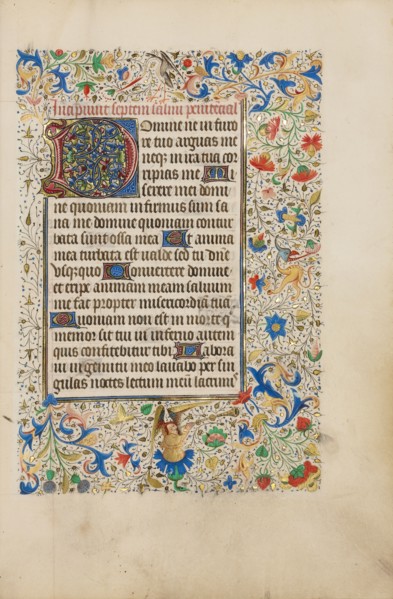 Incipiunt septem salmi penitecial
Domine ne in furo
re tuo arguas me
neqꝫ in ira tua cor
ripias me Mi
serere mei domi
ne quoniam infirmus sum sa
na me domine quoniam contur
bata sunt ossa mea Et anima
mea turbata est valde sed tu dn̄e
vsquequo Conuertere domine
et eripe animam meam saluum
me fac propter misericordiā tuā
Quoniam non est in morte q
memor sit tui in inferno autem
quis confitebitur tibi Labora
ui in gemitu meo lauabo per sin
gulas noctes lectum meū lacrimi